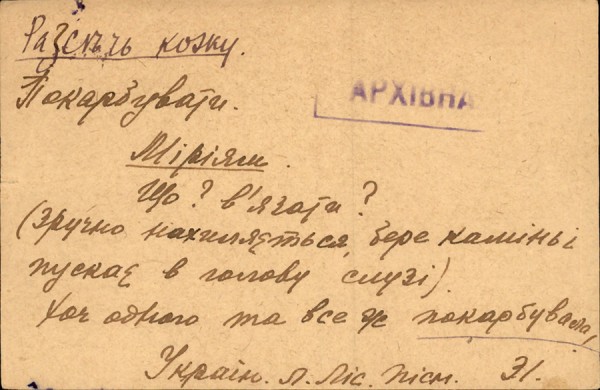 Разсѣчь кожу.
Покарбувати.
АРХІВНА
Міріям.
Що? в'язати?
(зручно нахиляється, бере камінь і
пускає в голову слузі).
Хоч одного та все ж покарбувала,
Україн. Л. Ліс. Пісн. 31.